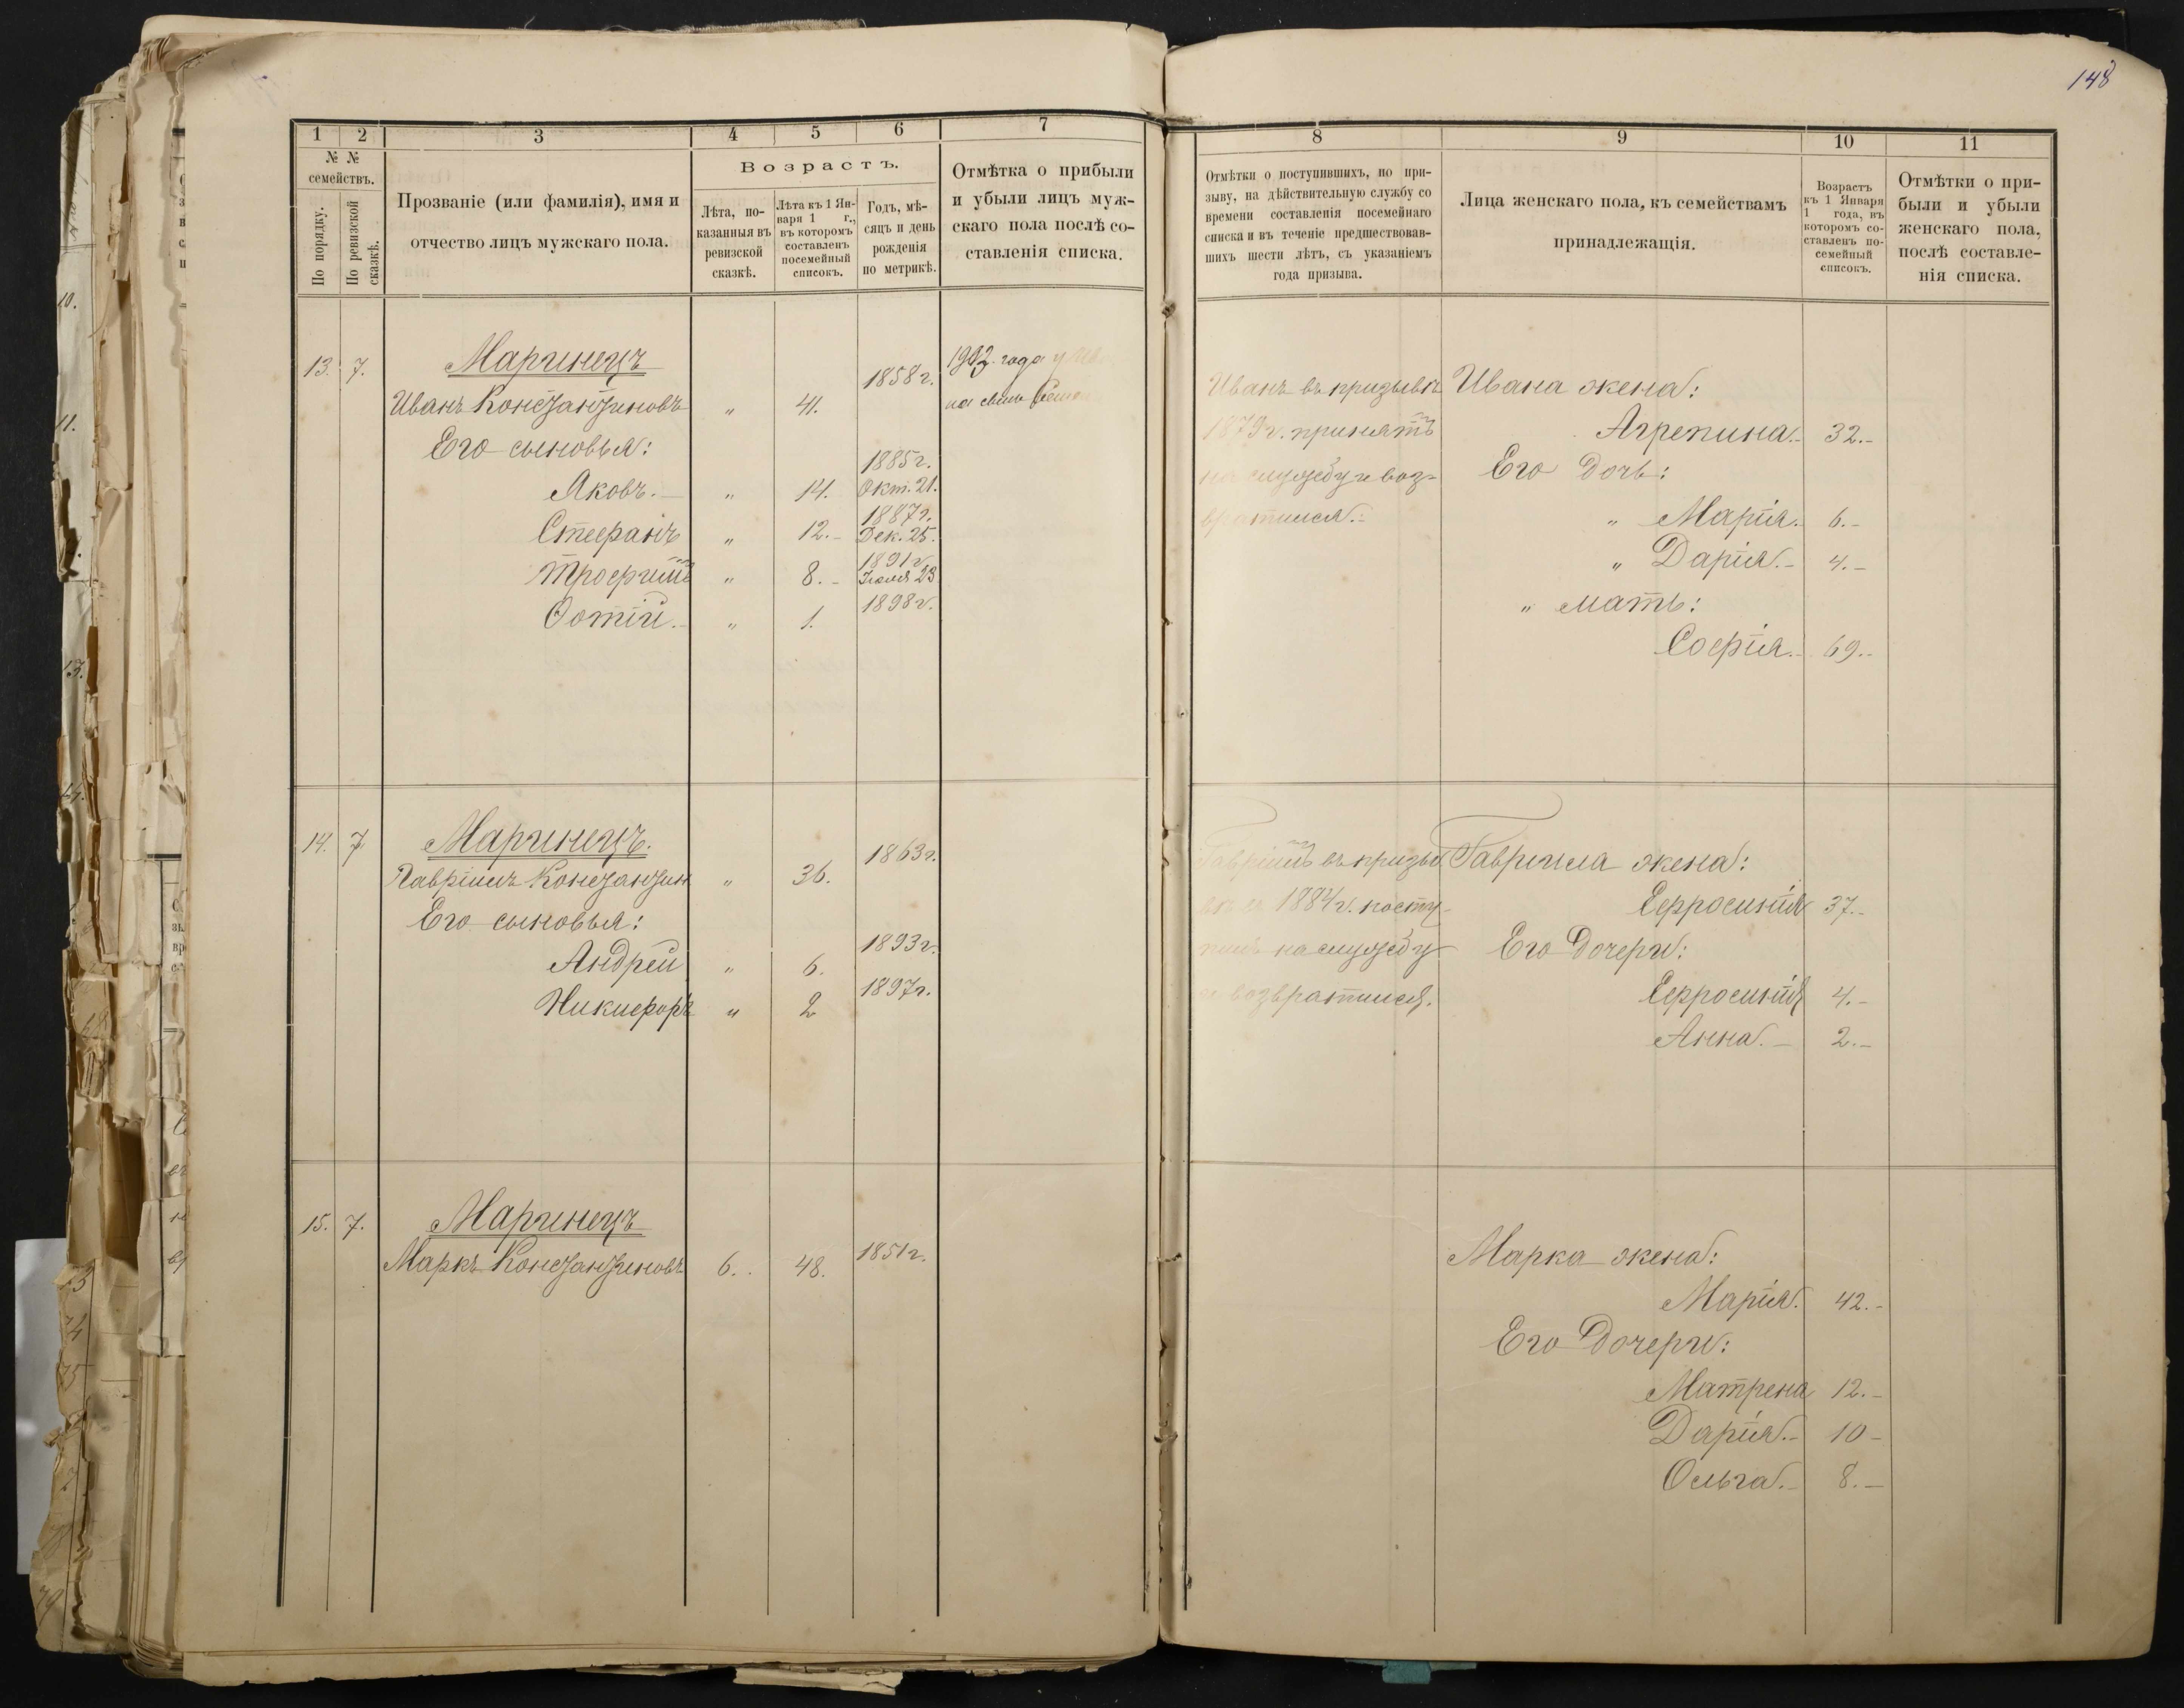 148
1 2 3 4 5 6 7
№ №
семействъ.
По порядку.
По ревизской
сказкѣ.
Прозваніе (или фамилія), имя и
отчество лицъ мужскаго пола.
Возрастъ.
Лѣта, по-
казанныя въ
ревизской
сказкѣ.
Лѣта къ 1 Ян-
варя 1 г.,
въ которомъ
составленъ
посемейный
списокъ.
Годъ, мѣ-
сяцъ и день
рожденія
по метрикѣ.
Отмѣтка о прибыли
и убыли лицъ муж-
скаго пола послѣ со-
ставленія списка.
8 9 10 11
Отмѣтки о поступившихъ, по при-
зыву, на дѣйствительную службу со
времени составленія посемейнаго
списка и въ теченіе предшествовав-
шихъ шести лѣтъ, съ указаніемъ
года призыва.
Лица женскаго пола, къ семействамъ
принадлежащія.
Возрастъ
къ 1 Января
1 года, въ
которомъ со-
ставленъ по-
семейный
списокъ.
Отмѣтки о при-
были и убыли
женскаго пола,
послѣ составле-
нія списка.
13. 7. Маринецъ
1858 г.
Иванъ Константиновъ " 41.
Его сыновья:
1885 г.
Яковъ. " 14. Окт. 21.
1887 г.
Стефанъ " 12. Дек. 25.
1891 г.
Трофимъ " 8. Іюля 23
1898 г.
Фотій. " 1.
года
на
Иванъ въ призывѣ
1879 г. принятъ
на службу и воз-
вратился.
Ивана жена:
Агрепина. 32.
Его дочь:
" Марія. 6.
" Дарія. 4.
" мать:
Софія. 69.
14. 7 Маринецъ.
1863 г.
Гавріилъ Константин " 36.
Его сыновья:
1893 г.
Андрей " 6.
1897 г.
Никифоръ " 2
Гавріилъ въ призы
1884 г. посту-
пилъ на службу
и возвратился.
Гавриила жена:
Ефросинія 37.
Его дочери:
Ефросинія 4.
Анна. 2.
15. 7. Маринецъ
1851 г.
Маркъ Константиновъ 6. 48.
Марка жена:
Марія. 42.
Его дочери:
Матрена 12.
Дарія. 10
Ольга. 8.